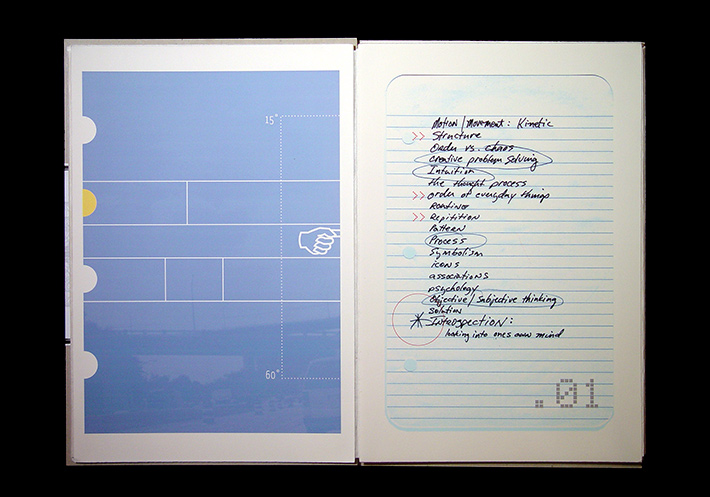 15°
60°
Motion / Movement: Kinetic
>> Structure
Order vs. chaos
creative problem solving
Intuition
the thought process
>> order of everyday things
Routines
>> Repitition
Pattern
Process
Symbolism
icons
associations
psychology
Objective / Subjective thinking
solution
* Introspection:
looking into ones own mind
.01